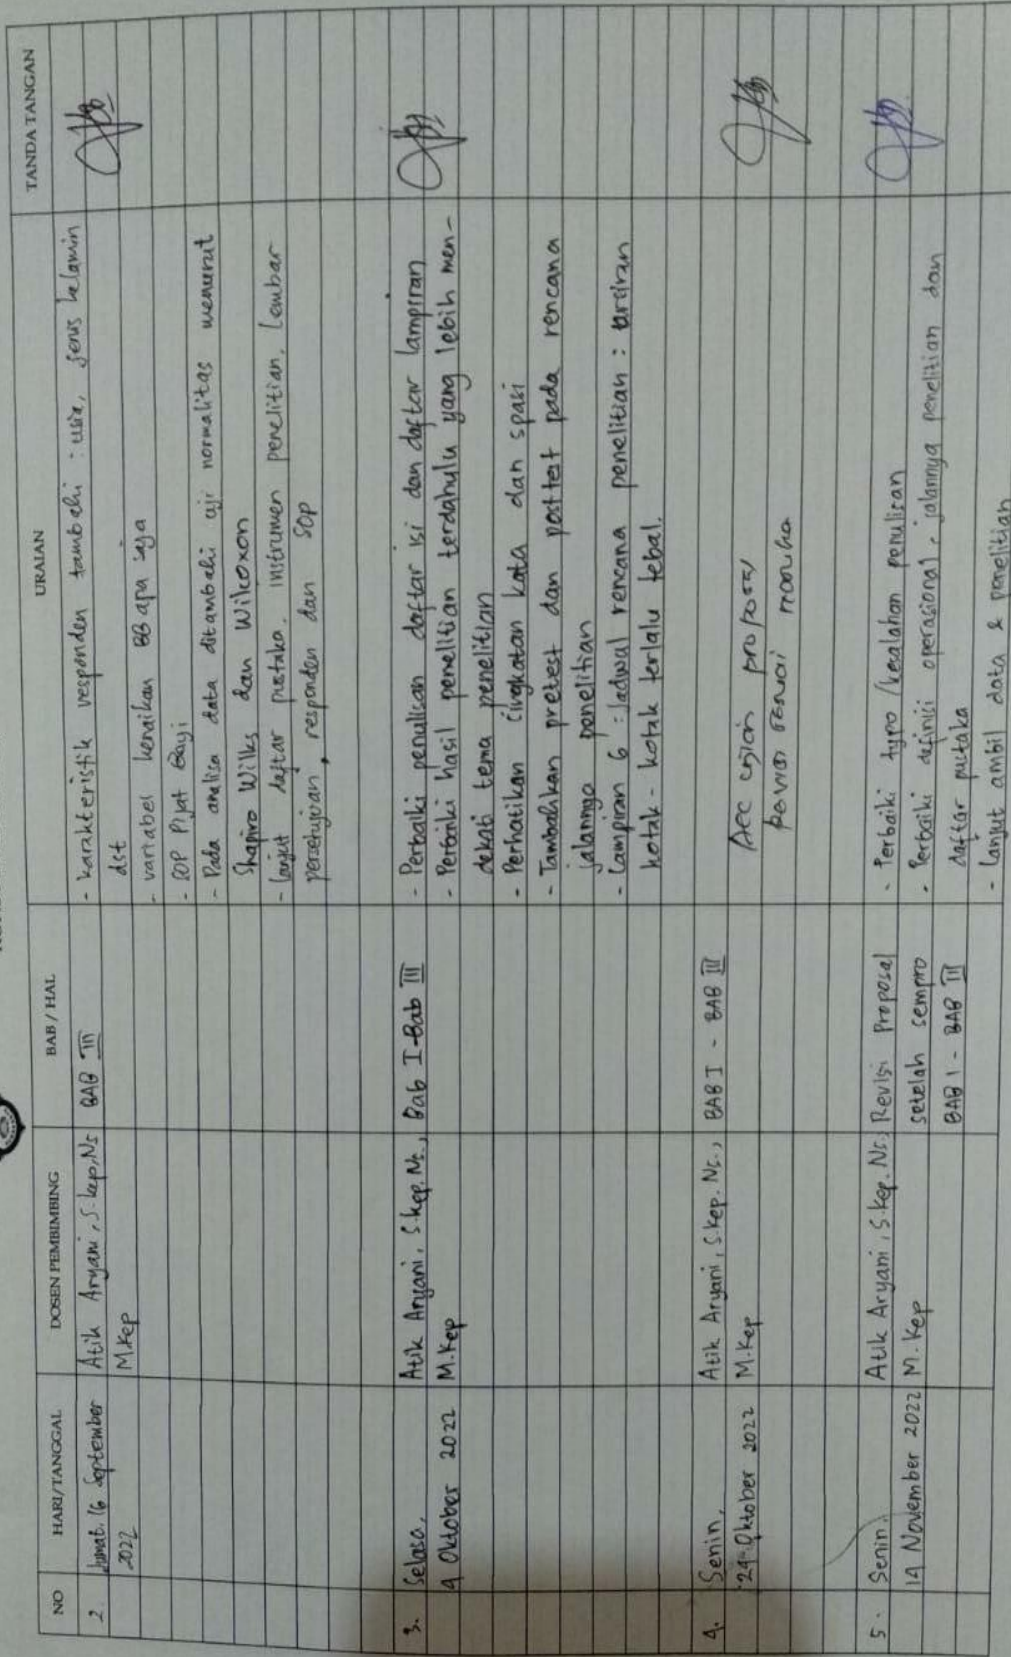 NO HARI/TANGGAL DOSEN PEMBIMBING BAB / HAL URAIAN TANDA TANGAN
2. Jumat, 16 September 2022
Atik Aryani, S.kep, Ns
M.Kep
BAB III
- karakteristik responden tambahi : usia, jenis kelamin
dst
- variabel kenaikan BB apa saja
- SOP Pijat Bayi
- Pada analisa data ditambahi uji normalitas menurut
Shapiro Wilks dan Wilcoxon
- lanjut daftar pustaka, instrumen penelitian, lembar
persetujuan, responden dan SOP
3. Selasa,
4 Oktober 2022
Atik Aryani, S.kep. Ns.,
M.Kep
Bab I-Bab III
- Perbaiki penulisan daftar isi dan daftar lampiran
- Perbaiki hasil penelitian terdahulu yang lebih men-
dekati tema penelitian
- Perhatikan singkatan kata dan spasi
- Tambahkan pretest dan posttest pada rencana
jalannya penelitian
- Lampiran 6 : Jadwal rencana penelitian : arsiran
kotak - kotak terlalu tebal.
4. Senin,
24 Oktober 2022
Atik Aryani, S.kep. Ns.,
M.Kep
BAB I - BAB III
Acc ujian proposal
5. Senin.
14 November 2022
Atik Aryani, S.Kep. Ns,
M. Kep
Revisi Proposal
setelah sempro
BAB I - BAB III
- Perbaiki typo / kesalahan penulisan
- Perbaiki definisi operasional, jalannya penelitian dan
daftar pustaka
- Lanjut ambil data & penelitian